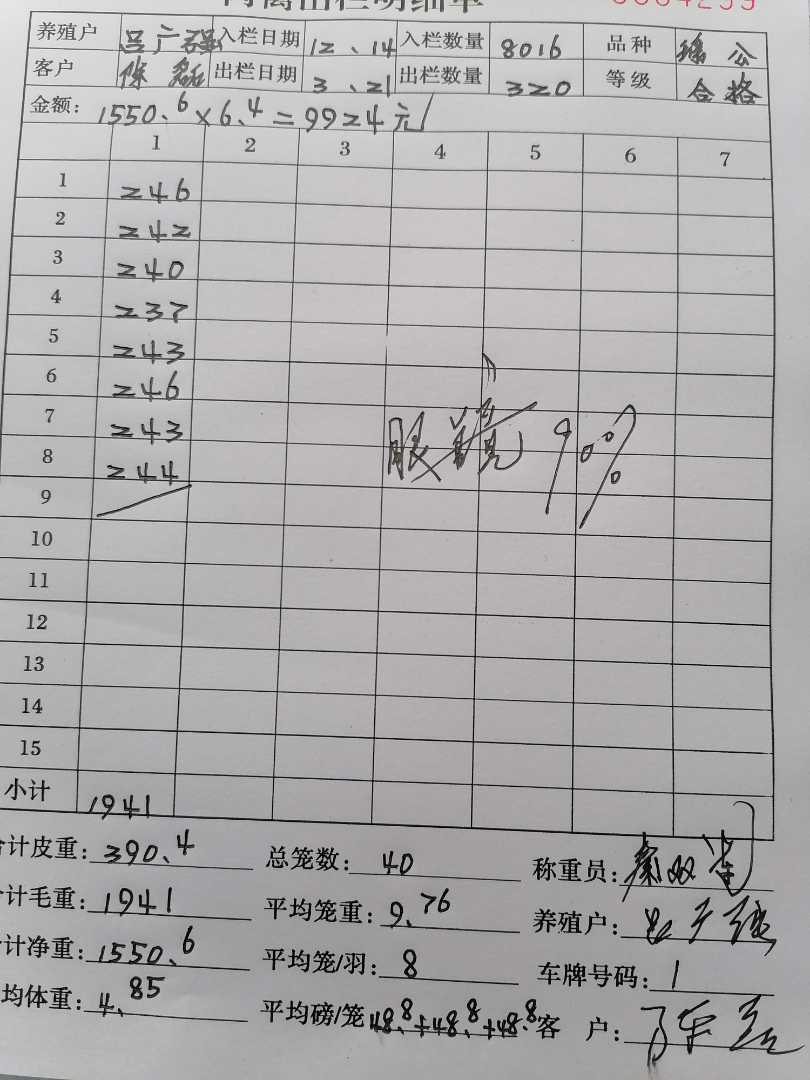 肉禽出栏明细单 0004299
养殖户 吕广强 入栏日期 12、14 入栏数量 8016 品种 瑶公
客户 陈磊 出栏日期 3、21 出栏数量 320 等级 合格
金额: 1550.6×6.4=9924元
1 2 3 4 5 6 7
1 246
2 242
3 240
4 237
5 243
6 246
7 243
8 244
9
10
11
12
13
14
15
90%
小计 1941
合计皮重: 390.4 总笼数: 40 称重员:
合计毛重: 1941 平均笼重: 9.76 养殖户:
合计净重: 1550.6 平均笼/羽: 8 车牌号码: 1
平均体重: 4.85 平均磅/笼 48.8+48.8+48.8 客 户: